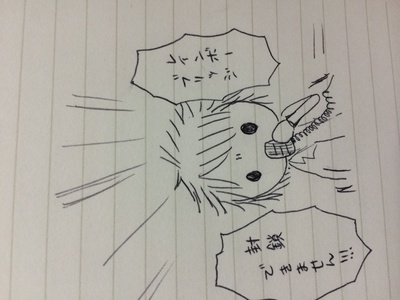 レインボー
ブリッジ
封鎖
できません!!!